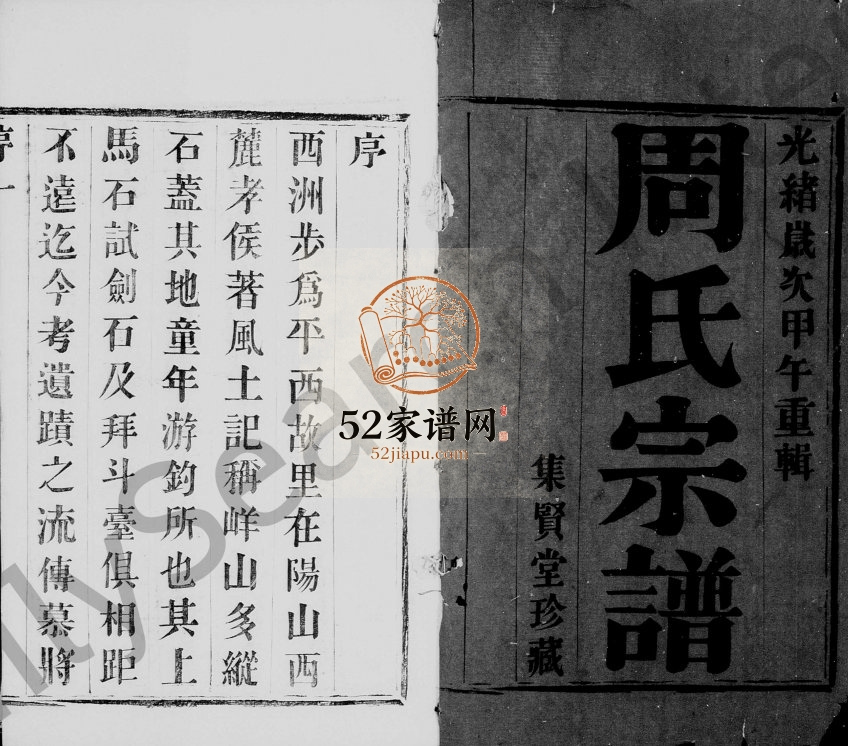 光緒歲次甲午重輯
周氏宗譜
集賢堂珍藏
序
西洲步爲平西故里在陽山西
麓孝侯著風土記稱峄山多縱
石蓋其地童年游釣所也其上
馬石試劍石及拜斗臺俱相距
不遠迄今考遺蹟之流傳慕將
序一
52家谱网
52jiapu.com